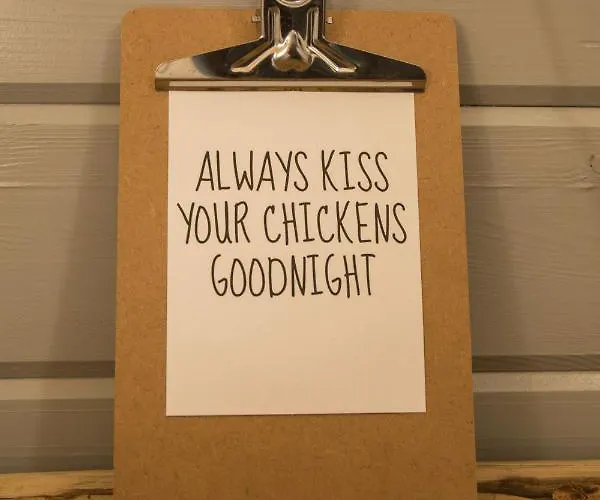 ALWAYS KISS
YOUR CHICKENS
GOODNIGHT